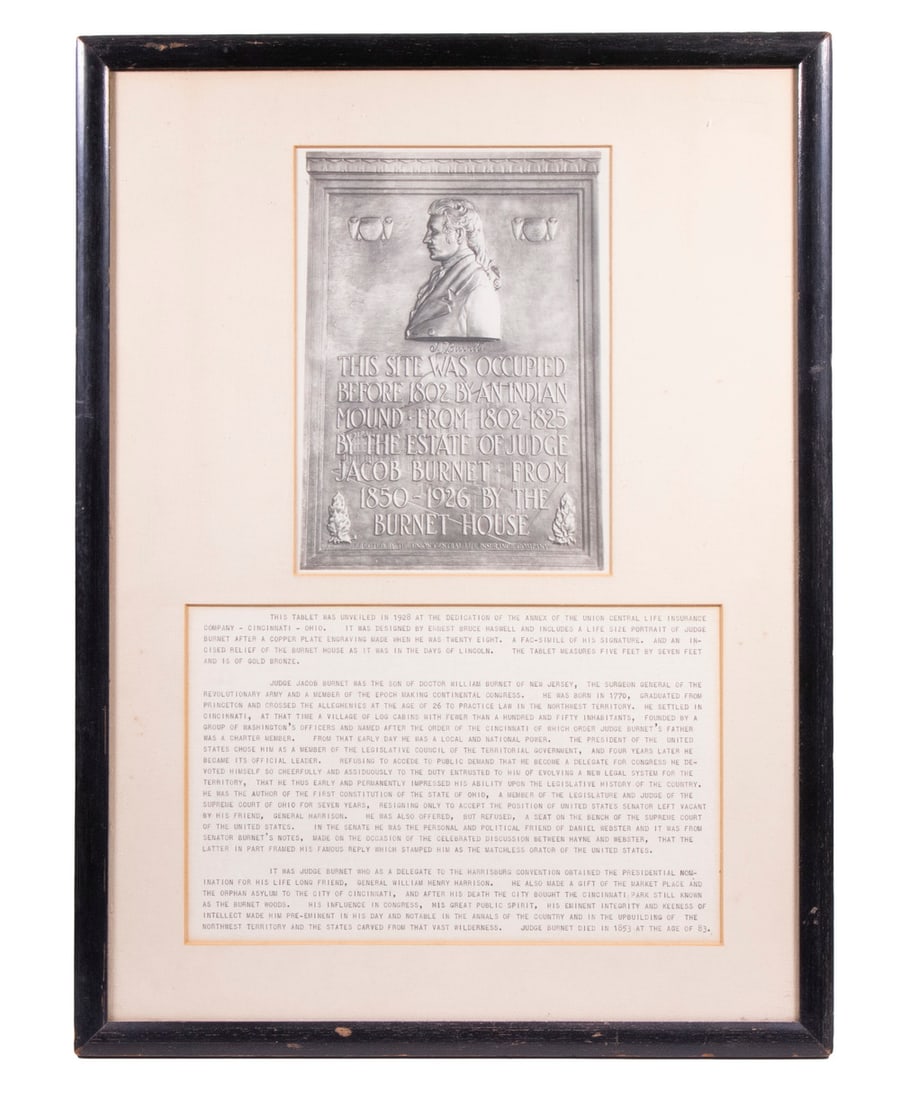 THIS SITE WAS OCCUPIED
BEFORE 1802 BY AN INDIAN
MOUND · FROM 1802-1825
BY THE ESTATE OF JUDGE
JACOB BURNET · FROM
1850-1926 BY THE
BURNET HOUSE
THE UNION CENTRAL LIFE INSURANCE COMPANY
THIS TABLET WAS UNVEILED IN 1928 AT THE DEDICATION OF THE ANNEX OF THE UNION CENTRAL LIFE INSURANCE
COMPANY - CINCINNATI - OHIO. IT WAS DESIGNED BY ERNEST BRUCE HASWELL AND INCLUDES A LIFE SIZE PORTRAIT OF JUDGE
BURNET AFTER A COPPER PLATE ENGRAVING MADE WHEN HE WAS TWENTY EIGHT. A FAC-SIMILE OF HIS SIGNATURE. AND AN IN-
CISED RELIEF OF THE BURNET HOUSE AS IT WAS IN THE DAYS OF LINCOLN. THE TABLET MEASURES FIVE FEET BY SEVEN FEET
AND IS OF GOLD BRONZE.
JUDGE JACOB BURNET WAS THE SON OF DOCTOR WILLIAM BURNET OF NEW JERSEY, THE SURGEON GENERAL OF THE
REVOLUTIONARY ARMY AND A MEMBER OF THE EPOCH MAKING CONTINENTAL CONGRESS. HE WAS BORN IN 1770, GRADUATED FROM
PRINCETON AND CROSSED THE ALLEGHENIES AT THE AGE OF 26 TO PRACTICE LAW IN THE NORTHWEST TERRITORY. HE SETTLED IN
CINCINNATI, AT THAT TIME A VILLAGE OF LOG CABINS WITH FEWER THAN A HUNDRED AND FIFTY INHABITANTS, FOUNDED BY A
GROUP OF WASHINGTON'S OFFICERS AND NAMED AFTER THE ORDER OF THE CINCINNATI OF WHICH ORDER JUDGE BURNET'S FATHER
WAS A CHARTER MEMBER. FROM THAT EARLY DAY HE WAS A LOCAL AND NATIONAL POWER. THE PRESIDENT OF THE UNITED
STATES CHOSE HIM AS A MEMBER OF THE LEGISLATIVE COUNCIL OF THE TERRITORIAL GOVERNMENT, AND FOUR YEARS LATER HE
BECAME ITS OFFICIAL LEADER. REFUSING TO ACCEDE TO PUBLIC DEMAND THAT HE BECOME A DELEGATE FOR CONGRESS HE DE-
VOTED HIMSELF SO CHEERFULLY AND ASSIDUOUSLY TO THE DUTY ENTRUSTED TO HIM OF EVOLVING A NEW LEGAL SYSTEM FOR THE
TERRITORY, THAT HE THUS EARLY AND PERMANENTLY IMPRESSED HIS ABILITY UPON THE LEGISLATIVE HISTORY OF THE COUNTRY.
HE WAS THE AUTHOR OF THE FIRST CONSTITUTION OF THE STATE OF OHIO, A MEMBER OF THE LEGISLATURE AND JUDGE OF THE
SUPREME COURT OF OHIO FOR SEVEN YEARS, RESIGNING ONLY TO ACCEPT THE POSITION OF UNITED STATES SENATOR LEFT VACANT
BY HIS FRIEND, GENERAL HARRISON. HE WAS ALSO OFFERED, BUT REFUSED, A SEAT ON THE BENCH OF THE SUPREME COURT
OF THE UNITED STATES. IN THE SENATE HE WAS THE PERSONAL AND POLITICAL FRIEND OF DANIEL WEBSTER AND IT WAS FROM
SENATOR BURNET'S NOTES, MADE ON THE OCCASION OF THE CELEBRATED DISCUSSION BETWEEN HAYNE AND WEBSTER, THAT THE
LATTER IN PART FRAMED HIS FAMOUS REPLY WHICH STAMPED HIM AS THE MATCHLESS ORATOR OF THE UNITED STATES.
IT WAS JUDGE BURNET WHO AS A DELEGATE TO THE HARRISBURG CONVENTION OBTAINED THE PRESIDENTIAL NOM-
INATION FOR HIS LIFE LONG FRIEND, GENERAL WILLIAM HENRY HARRISON. HE ALSO MADE A GIFT OF THE MARKET PLACE AND
THE ORPHAN ASYLUM TO THE CITY OF CINCINNATI, AND AFTER HIS DEATH THE CITY BOUGHT THE CINCINNATI PARK STILL KNOWN
AS THE BURNET WOODS. HIS INFLUENCE IN CONGRESS, HIS GREAT PUBLIC SPIRIT, HIS EMINENT INTEGRITY AND KEENESS OF
INTELLECT MADE HIM PRE-EMINENT IN HIS DAY AND NOTABLE IN THE ANNALS OF THE COUNTRY AND IN THE UPBUILDING OF THE
NORTHWEST TERRITORY AND THE STATES CARVED FROM THAT VAST WILDERNESS. JUDGE BURNET DIED IN 1853 AT THE AGE OF 83.